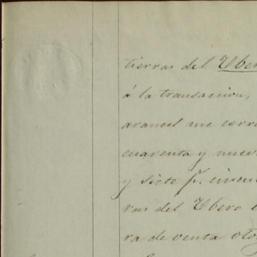 tierras del Ubero
á la transacion,
arancel me corre
cuarenta y nueve
y siete p.
ras del Ubero
ra de venta oto